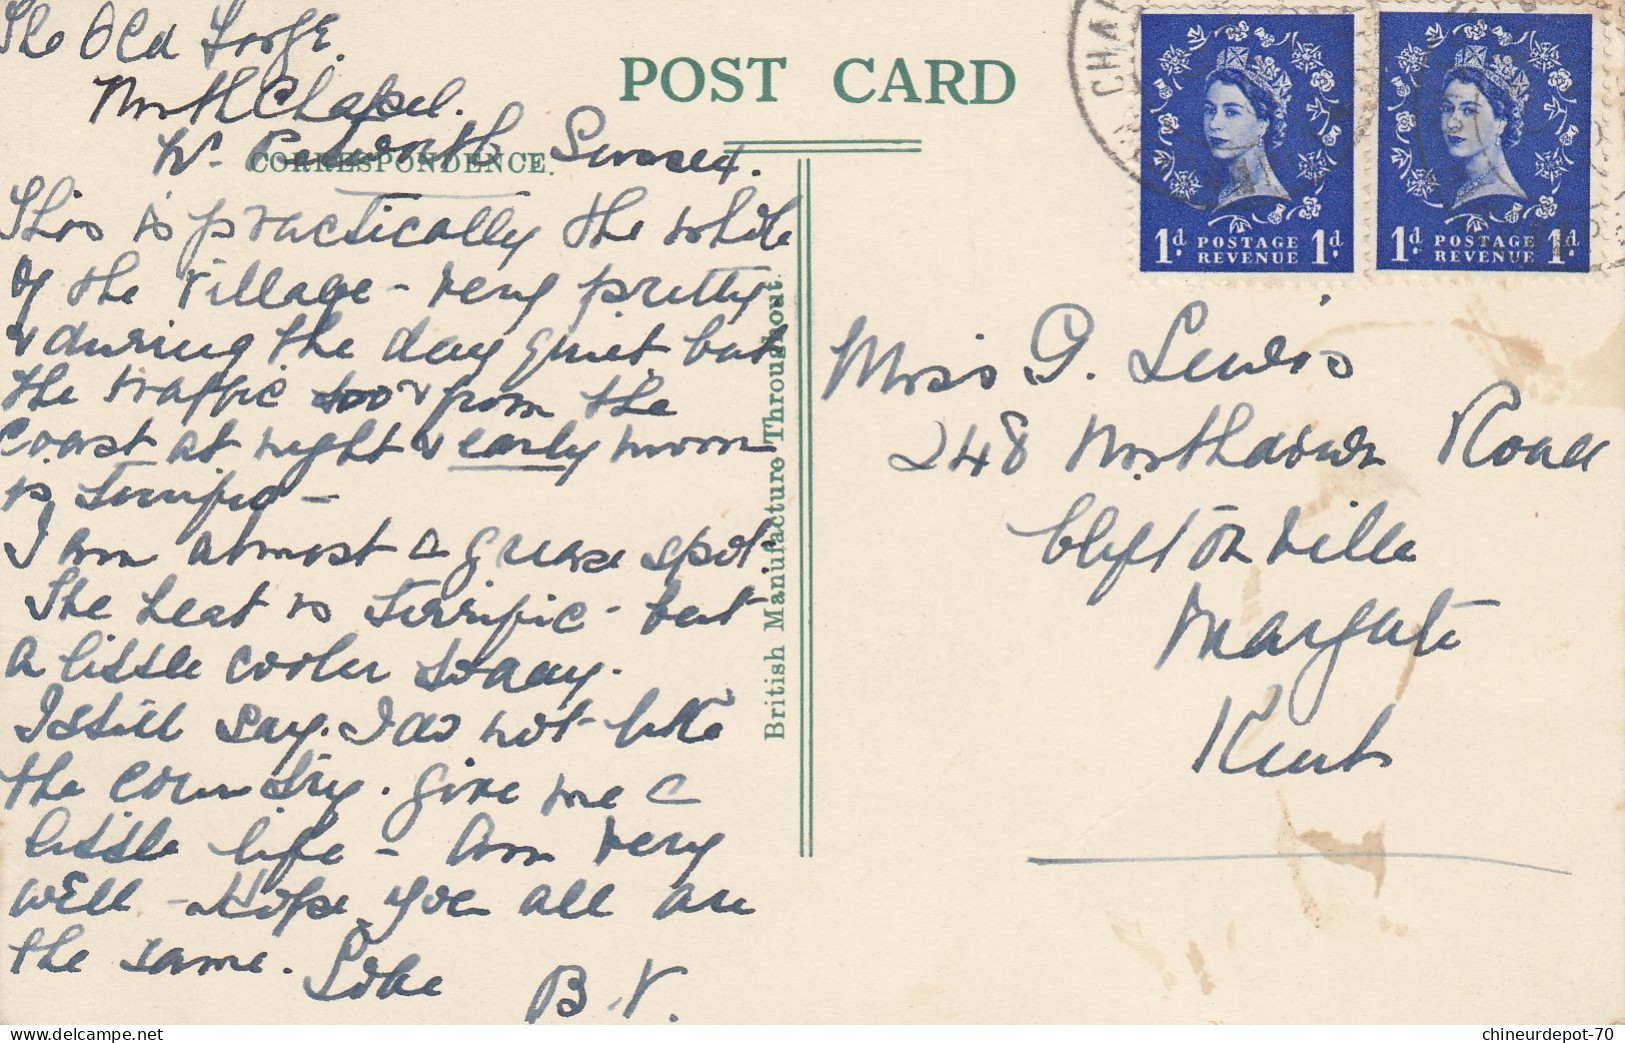 The Old Forge.
North Chapel.
Nr. Petworth Sussex.
POST CARD
CORRESPONDENCE.
This is practically the whole
of the village - very pretty
& during the day quiet but
the traffic to & from the
coast at night & early morn
is terrific -
I am almost a grease spot.
The heat is terrific - but
a little cooler today.
I still say. I do not like
the country. give me a
little life - Am very
well - Hope you all are
the same.
B.V.
British Manufacture Throughout.
CHA
1d POSTAGE REVENUE 1d
1d POSTAGE REVENUE 1d
Miss G. Lewis
248 Northdown Road
Cliftonville
Margate
Kent
chineurdepot-70